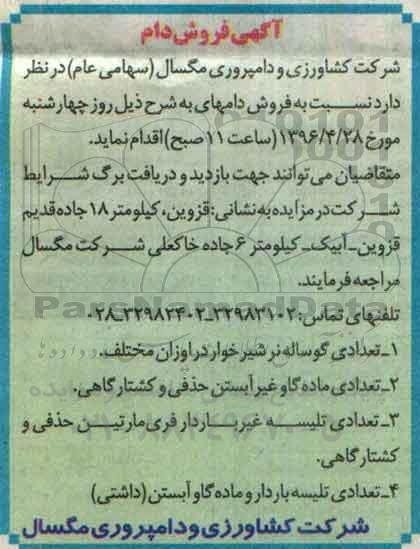 آگهی فروش دام
شرکت کشاورزی و دامپروری مگسال (سهامی عام) در نظر
دارد نسبت به فروش دامهای به شرح ذیل روز چهارشنبه
مورخ ۱۳۹۶/۴/۲۸ (ساعت ۱۱ صبح) اقدام نماید.
متقاضیان می توانند جهت بازدید و دریافت برگ شرایط
شرکت در مزایده به نشانی: قزوین، کیلومتر ۱۸ جاده قدیم
قزوین_آبیک_ کیلومتر ۶ جاده خاکعلی شرکت مگسال
مراجعه فرمایند.
ParsNamadData
تلفنهای تماس: ۳۲۹۸۳۱۰۲_۳۲۹۸۲۴۰۲_۰۲۸
۱_تعدادی گوساله نر شیرخوار در اوزان مختلف.
۲_تعدادی ماده گاو غیر آبستن حذفی و کشتارگاهی.
۳_تعدادی تلیسه غیر باردار فری مارتین حذفی و
کشتارگاهی.
۴_تعدادی تلیسه باردار و ماده گاو آبستن (داشتی)
شرکت کشاورزی و دامپروری مگسال